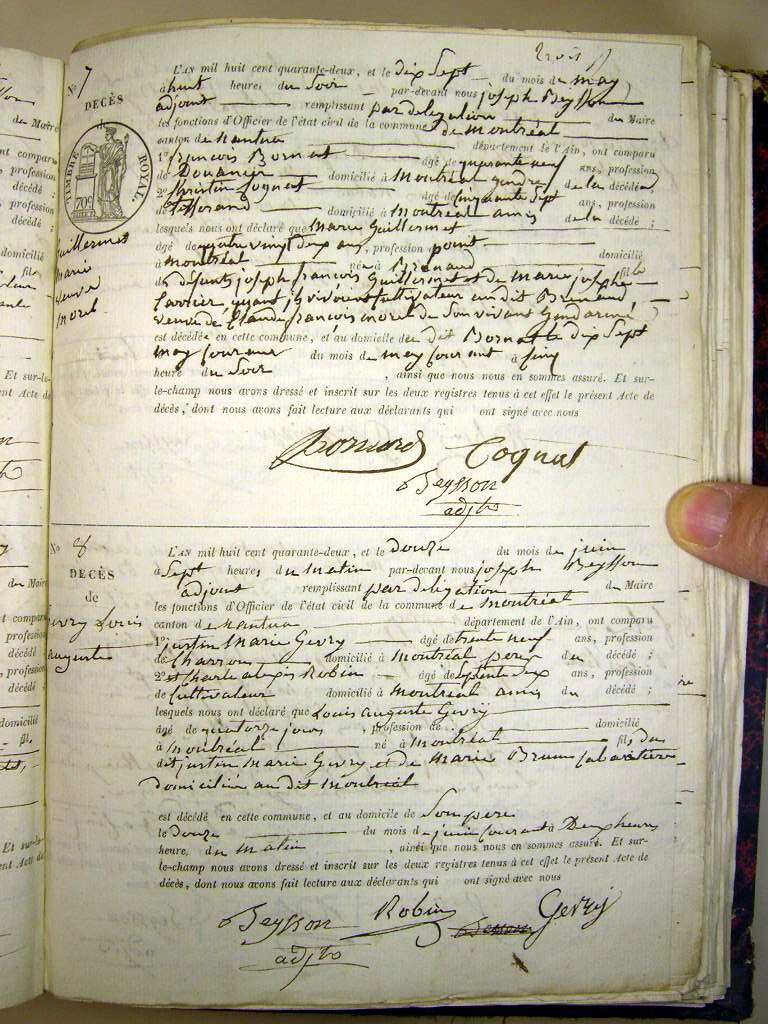 trois
No 7
DECÈS
TIMBRE ROYAL
709
Guillermet
Marie
veuve
Morel
L'AN mil huit cent quarante-deux, et le dix Sept du mois de may
à huit heures du Soir par-devant nous joseph Beysson
adjoint remplissant par delegation du Maire
les fonctions d'Officier de l'état civil de la commune de Montréal
canton de Nantua département de l'Ain, ont comparu
1° françois Bornat âgé de quarante neuf ans, profession
de Douanier domicilié à Montréal gendre de la décédée,
2° Cognat âgé de cinquante Sept ans, profession
de domicilié à Montréal amis de la décédé ;
lesquels nous ont déclaré que Marie Guillermet
âgé de quatre vingt dix ans, profession point domicilié
à Montréal né à Brenaud fille
de défunts joseph françois Guillermet et de Marie josephe
quant ils vivoient Cultivateur au dit Brenaud,
veuve de Claude françois Morel de Son vivant Gendarme
est décédée en cette commune, et au domicile de dit Bornat le dix Sept
may courant du mois de may courant à cinq
heure du Soir , ainsi que nous nous en sommes assuré. Et sur-
le-champ nous avons dressé et inscrit sur les deux registres tenus à cet effet le présent Acte de
décès, dont nous avons fait lecture aux déclarants qui ont signé avec nous
Cognat
Beysson
adjt
No 8
DECÈS
de
Gevry Louis
auguste
L'AN mil huit cent quarante-deux, et le douze du mois de juin
à Sept heures du Matin par-devant nous joseph Beysson
adjoint remplissant par delegation du Maire
les fonctions d'Officier de l'état civil de la commune de Montréal
canton de Nantua département de l'Ain, ont comparu
1° justin Marie Gevry âgé de trente neuf ans, profession
de Charron domicilié à Montréal pere du décédé ;
2° et Charle alexis Robin âgé de Septante dix ans, profession
de Cultivateur domicilié à Montréal amis du décédé ;
lesquels nous ont déclaré que Louis Auguste Gevry
âgé de quatorze jours , profession de domicilié
à Montréal né à Montréal fils du
dit justin Marie Gevry et de Marie Brun Cabaretiere
domiciliée au dit Montréal
est décédé en cette commune, et au domicile de Son pere
le douze du mois de juin courant à Deux heures
heure, du Matin , ainsi que nous nous en sommes assuré. Et sur-
le-champ nous avons dressé et inscrit sur les deux registres tenus à cet effet le présent Acte de
décès, dont nous avons fait lecture aux déclarants qui ont signé avec nous
Beysson Robin Gevry
adjt